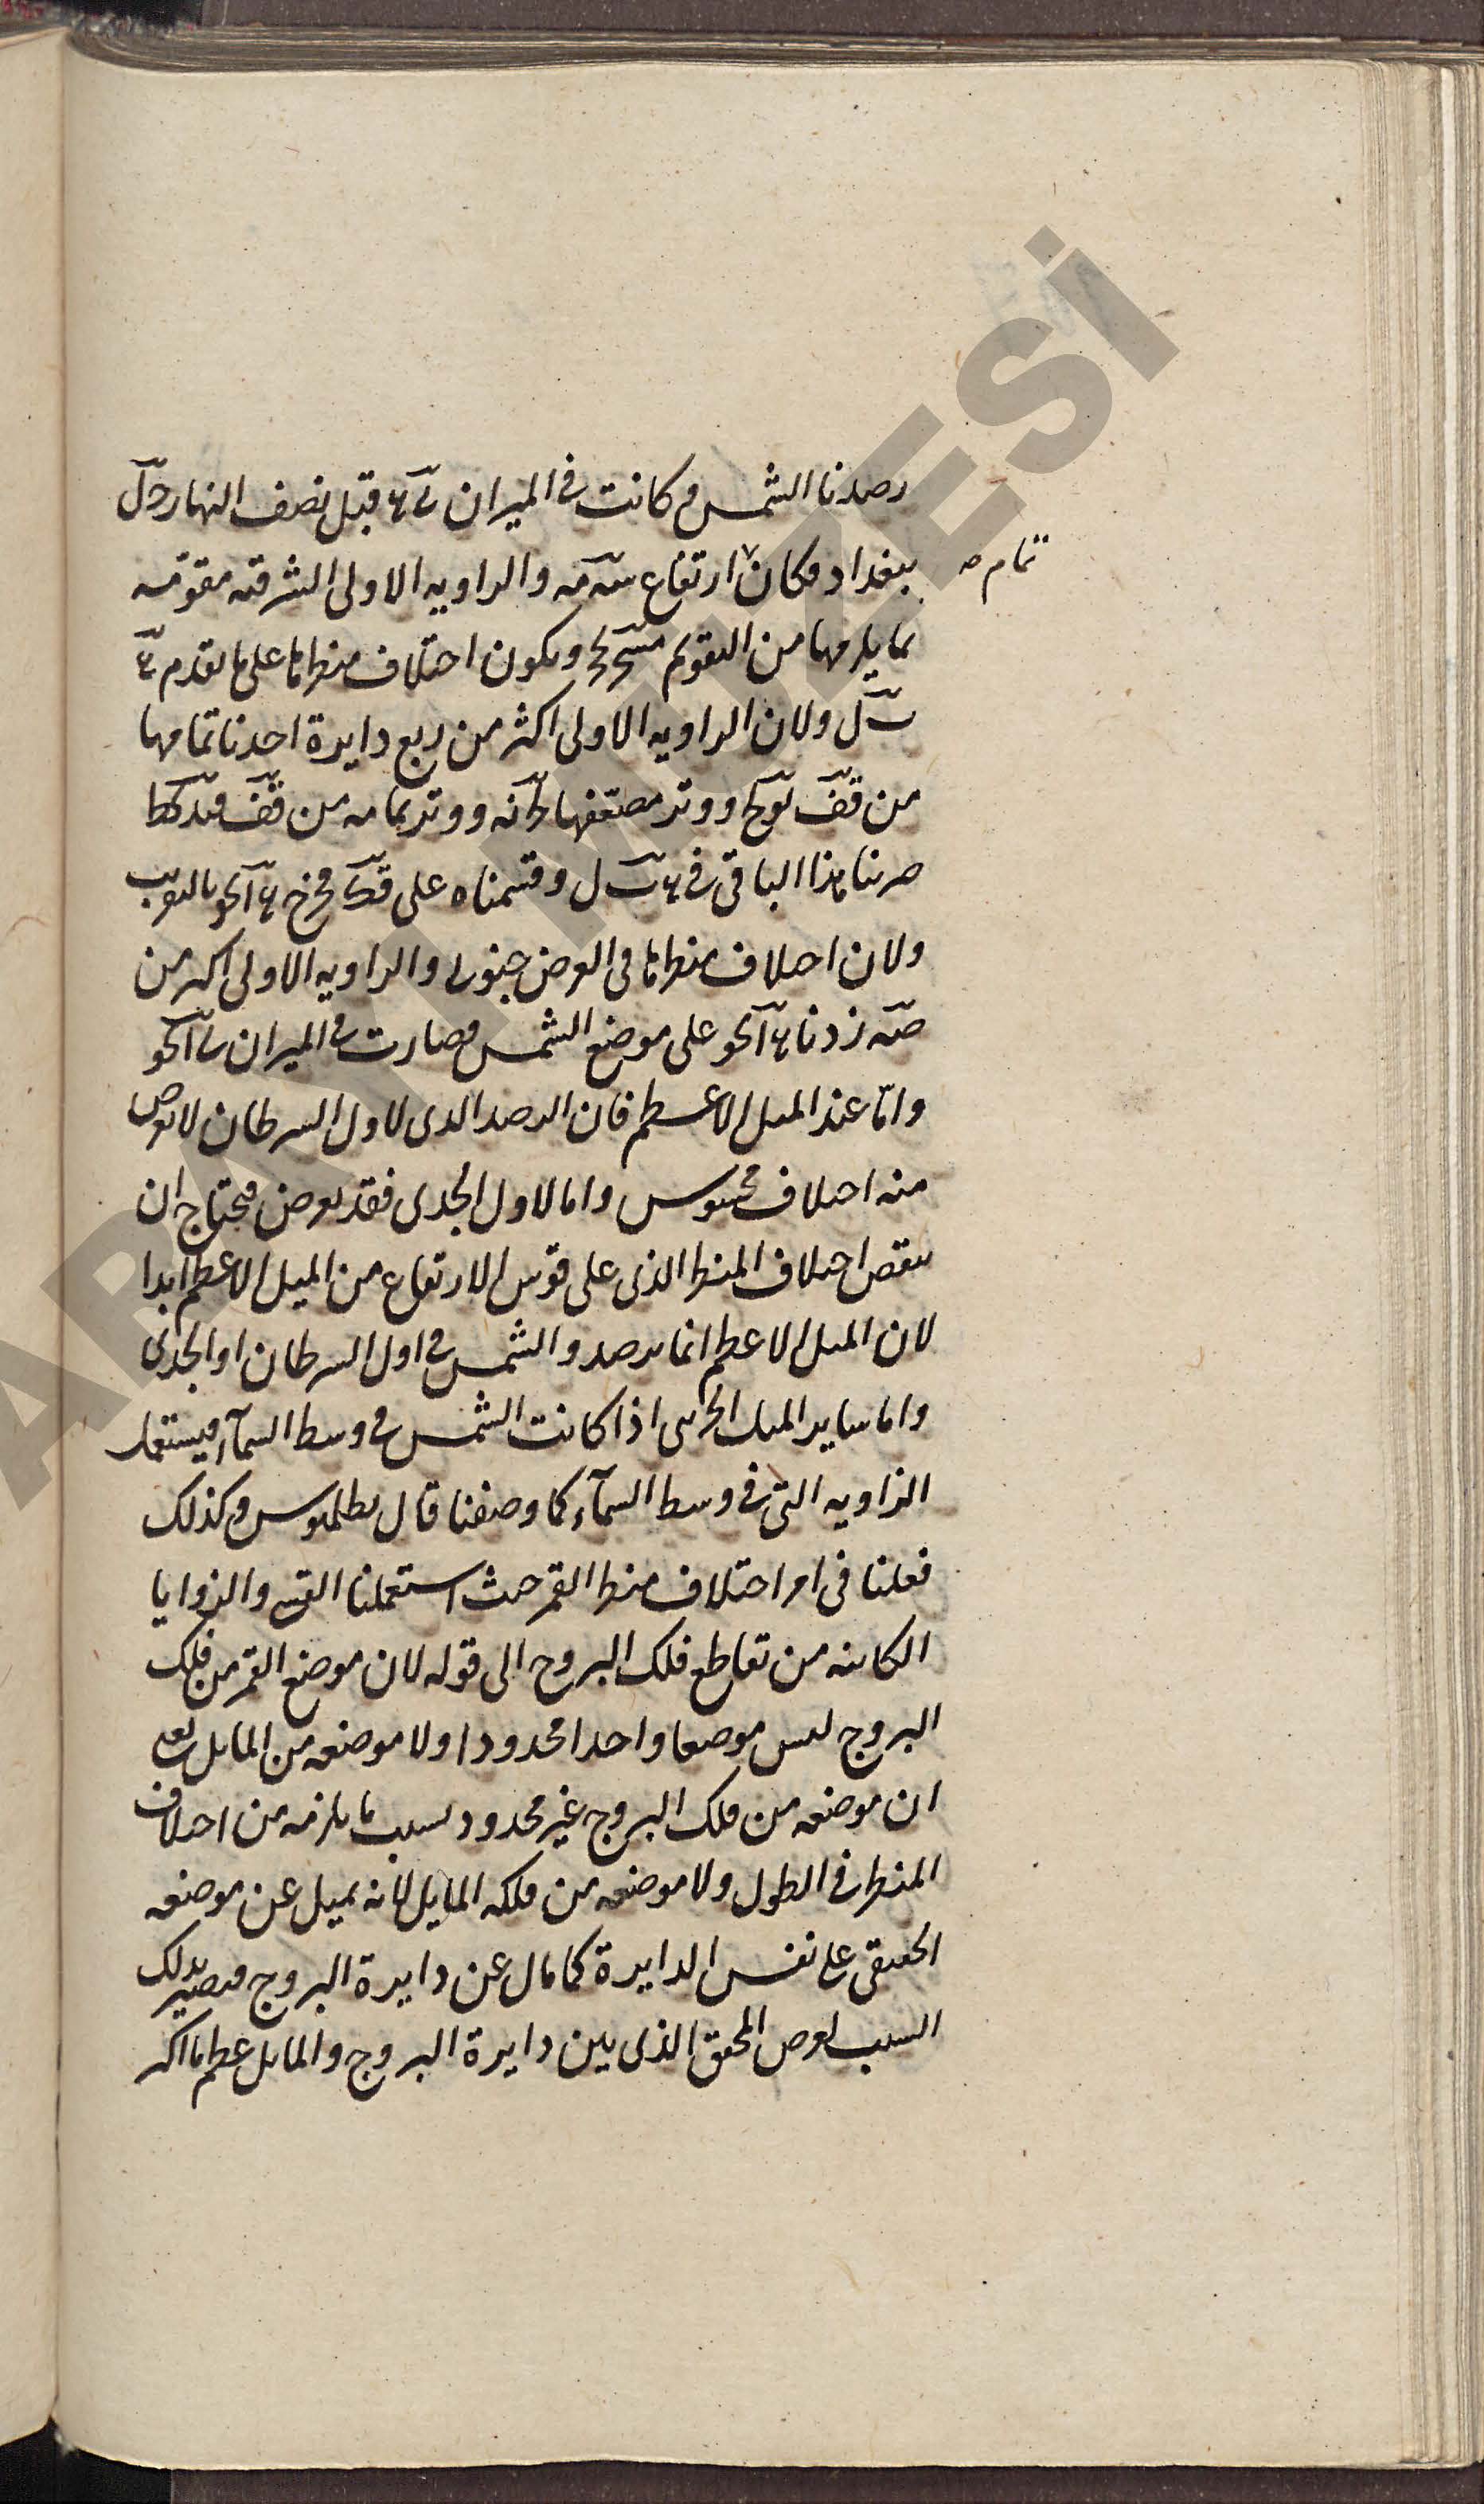 رصدنا الشمس وكانت فى الميزان قبل نصف النهار
تمام
ببغداد فكان ارتفاع سه مه والزاويه الاولى الشرقيه مقومه
بما يلزمها من التقويم ويكون اختلاف منظرها على ما تقدم
ل ولان الزاويه الاولى اكثر من ربع دايرة اخذنا تمامها
من قف ووتر مضعفها ووتر تمامه من قف
ضربنا هذا الباقى فى ل وقسمناه على قك فخرج بالتقريب
ولان اختلاف منظرها فى العرض جنوبى والزاويه الاولى اكثر من
زدنا على موضع الشمس فصارت فى الميزان
واما عند الميل الاعظم فان الرصد الذى لاول السرطان لا يعرض
منه اختلاف محسوس واما لاول الجدى فقد يعرض فيحتاج ان
ينقص اختلاف المنظر الذى على قوس الارتفاع من الميل الاعظم ابدا
لان الميل الاعظم انما يرصد والشمس فى اول السرطان او الجدى
واما ساير الميل الجزئى اذا كانت الشمس فى وسط السمآء فيستعمل
الزاويه التى فى وسط السمآء كما وصفنا قال بطلميوس وكذلك
فعلنا فى امر اختلاف منظر القمر حيث استعملنا القسى والزوايا
الكاينه من تقاطع فلك البروج الى قوله لان موضع القمر من فلك
البروج ليس موضعا واحدا محدودا ولا موضعه من المايل يعنى
ان موضعه من فلك البروج غير محدود بسبب ما يلزمه من اختلاف
المنظر فى الطول ولا موضعه من فلكه المايل لانه يميل عن موضعه
الحقيقى على نفس الدايرة كما مال عن دايرة البروج فيصير بذلك
السبب لعرض المحقق الذى بين دايرة البروج والمايل عظم ما اكثر